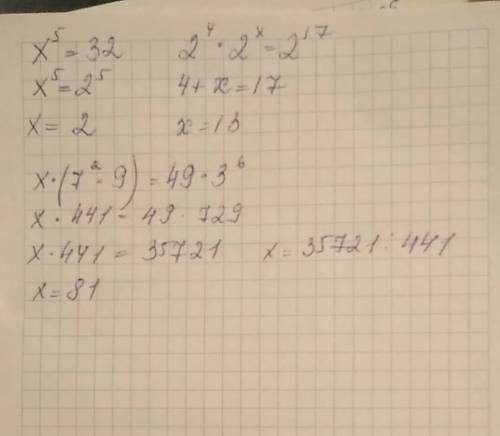 x⁵ = 32
x⁵ = 2⁵
x = 2
2⁴ · 2ˣ = 2¹⁷
4 + x = 17
x = 13
x · (7² · 9) = 49 · 3⁶
x · 441 = 49 · 729
x · 441 = 35721 x = 35721 : 441
x = 81